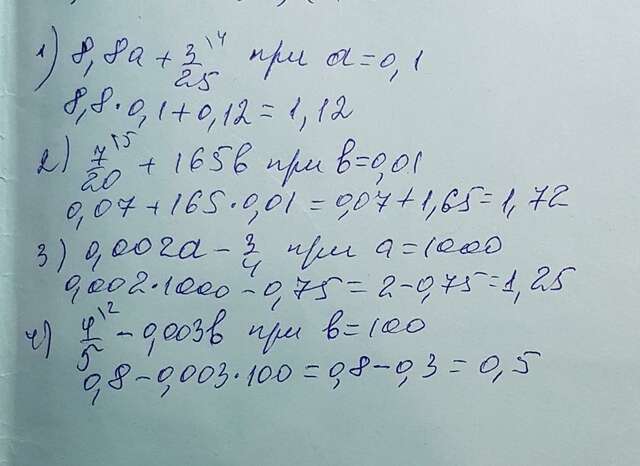 1) 8,8a + 3/25 \4 при a = 0,1
8,8 · 0,1 + 0,12 = 1,12
2) 7/20 \5 + 165b при b = 0,01
0,07 + 165 · 0,01 = 0,07 + 1,65 = 1,72
3) 0,002a - 3/4 при a = 1000
0,002 · 1000 - 0,75 = 2 - 0,75 = 1,25
4) 4/5 \2 - 0,003b при b = 100
0,8 - 0,003 · 100 = 0,8 - 0,3 = 0,5